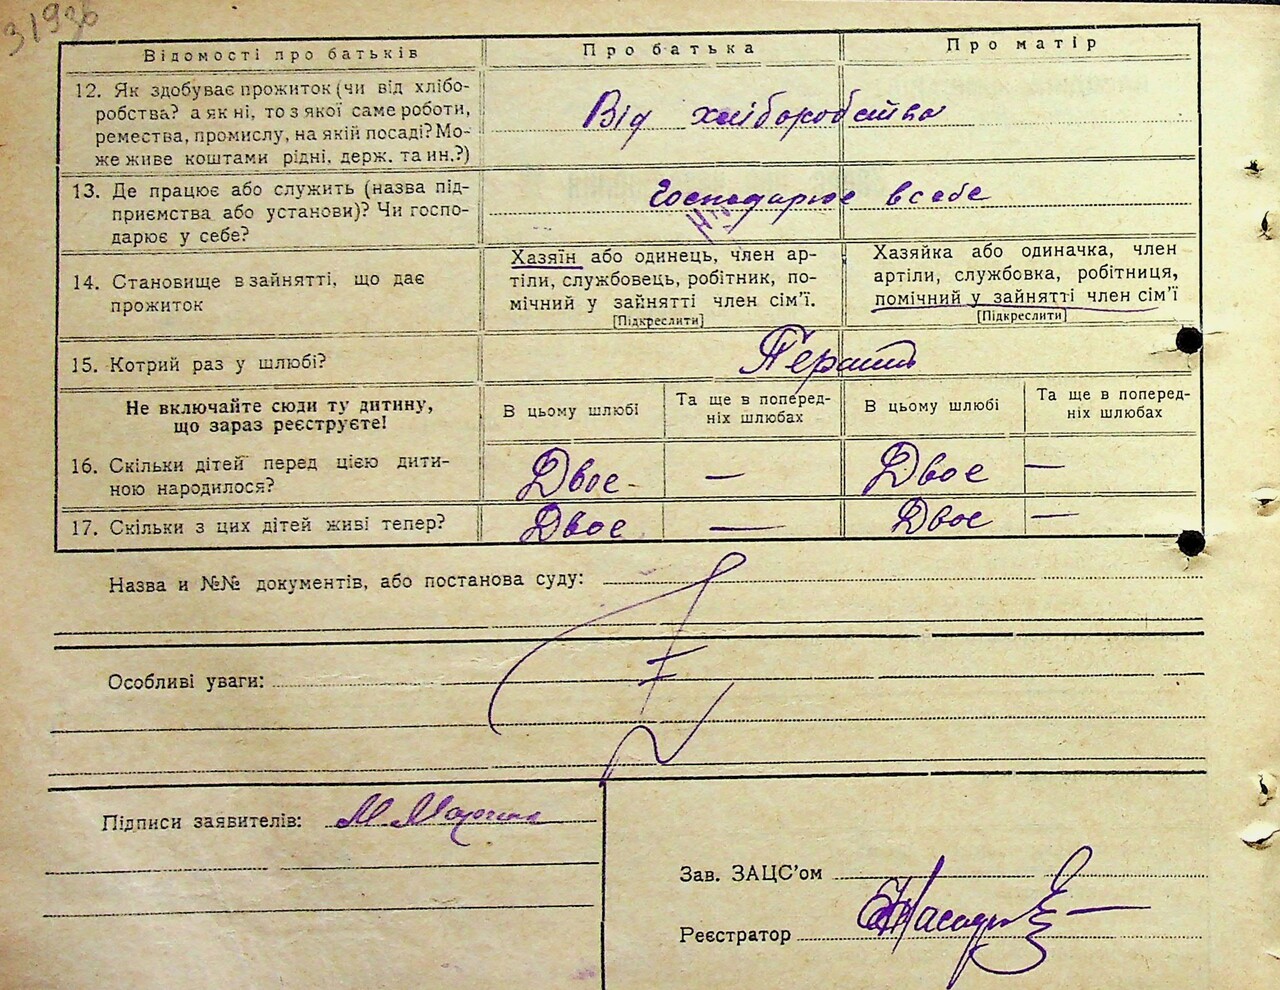 3193б
Відомості про батьків
Про батька
Про матір
12. Як здобуває прожиток (чи від хлібо-
робства? а як ні, то з якої саме роботи,
ремества, промислу, на якій посаді? Мо-
же живе коштами рідні, держ. та ин.?)
Від хліборобства
13. Де працює або служить (назва під-
приємства або установи)? Чи госпо-
дарює у себе?
Господарює в себе
14. Становище в зайнятті, що дає
прожиток
Хазяїн або одинець, член ар-
тіли, службовець, робітник, по-
мічний у зайнятті член сім'ї.
[Підкреслити]
Хазяйка або одиначка, член
артіли, службовка, робітниця,
помічний у зайнятті член сім'ї
[Підкреслити]
15. Котрий раз у шлюбі?
Не включайте сюди ту дитину,
що зараз реєструєте!
В цьому шлюбі
Та ще в поперед-
ніх шлюбах
В цьому шлюбі
Та ще в поперед-
ніх шлюбах
16. Скільки дітей перед цією дити-
ною народилося?
Двоє — Двоє —
17. Скільки з цих дітей живі тепер?
Двоє — Двоє —
Назва и №№ документів, або постанова суду:
Особливі уваги:
Підписи заявителів:
Зав. ЗАЦС'ом
Реєстратор